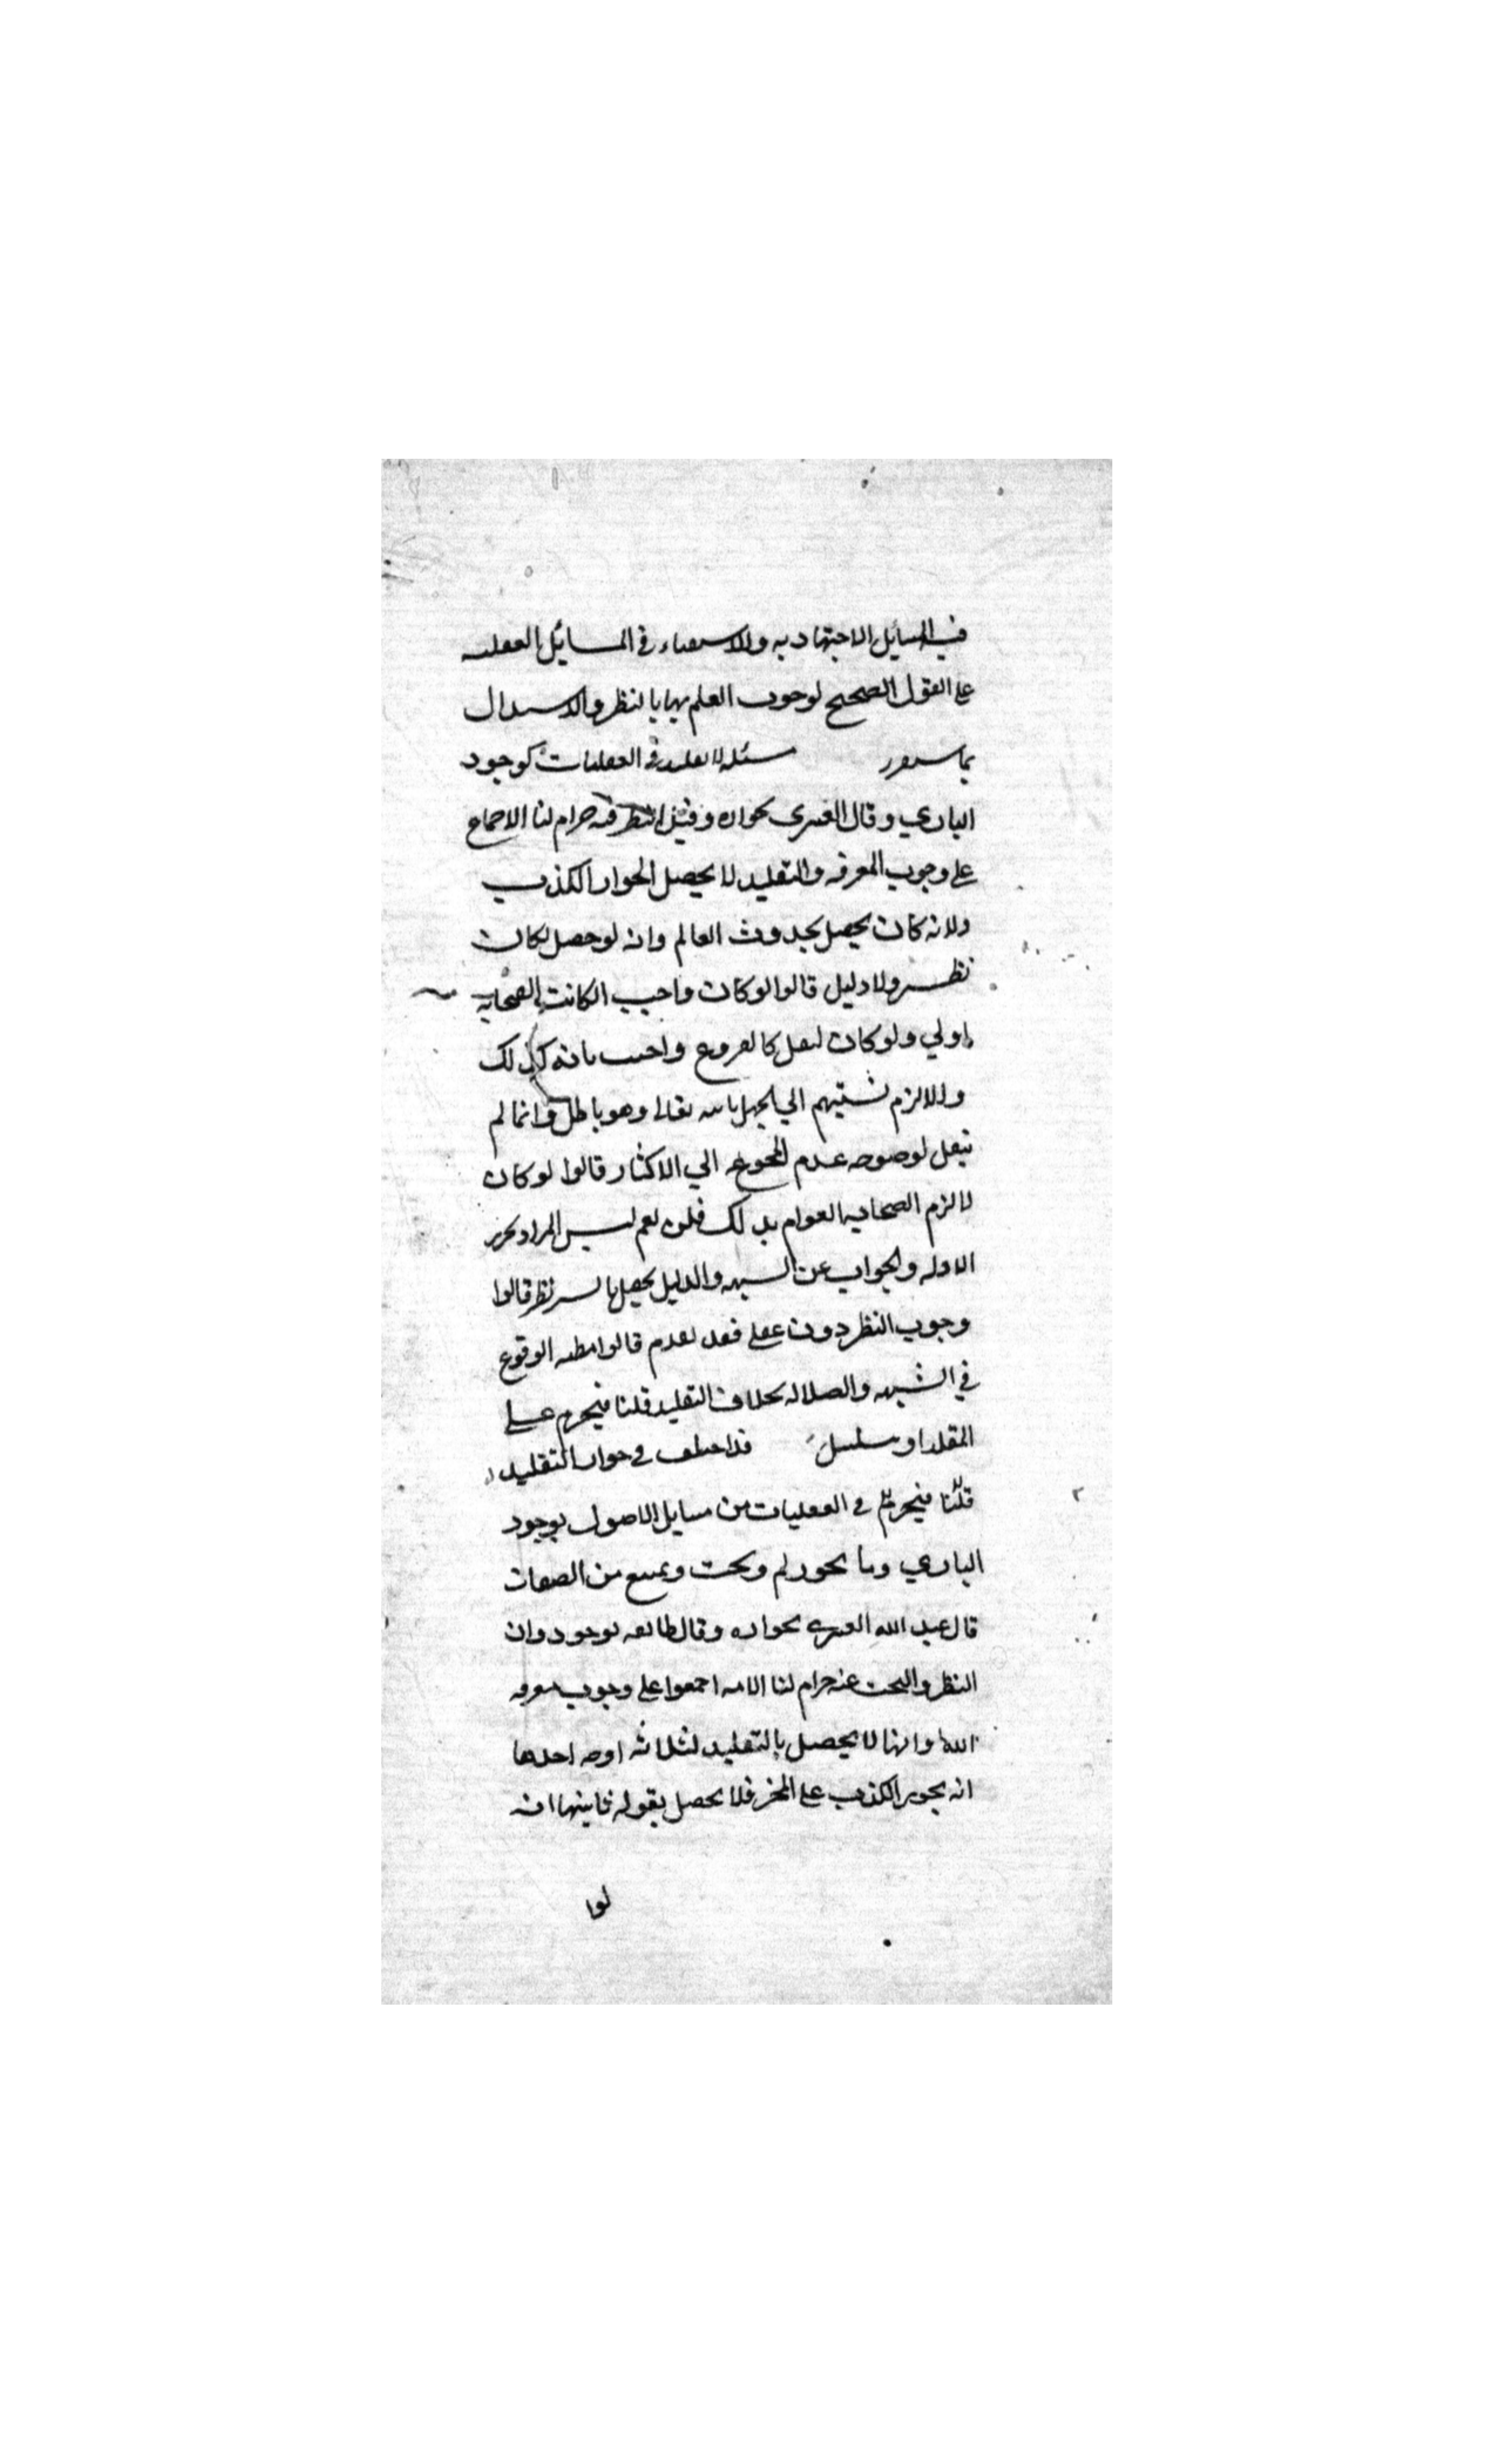 في المسايل الاجتهاديه والاستفتاء في المسائل العقليه
على القول الصحيح لوجوب العلم بها بالنظر والاستدلال
مسئله لا تقليد في العقليات كوجود
الباري وقال العنبري بجوازه وقيل النظر فيه حرام لنا الاجماع
على وجوب المعرفه والتقليد لا يحصل لجواز الكذب
ولانه كان يحصل بحدوث العالم وانه لو حصل لكان
نظر ولا دليل قالوا لو كان واجبا لكانت الصحابه
اولي ولو كان لنقل كالفروع واجيب بانه كذلك
والا لزم نسبتهم الي الجهل بالله تعالى وهو باطل وانما لم
ينقل لوضوحه عدم المحوجه الي الاكثار قالوا لو كان
لالزم الصحابه العوام بذلك قلنا نعم ليس المراد تحرير
الادله والجواب عن الشبهه والدليل يحصل بايسر نظر قالوا
وجوب النظر دون عقلي فقد تقدم قالوا مظنه الوقوع
في الشبهه والضلاله بخلاف التقليد قلنا فيحرم على
المقلد او يتسلسل قد اختلف في جواز التقليد
قلنا فيحرم في العقليات من مسايل الاصول بوجود
الباري وما يجوز له ويجب ويمتنع من الصفات
قال عبيد الله العنبري بجوازه وقال طائفه بوجوده وان
النظر والبحث عنه حرام لنا الامه اجمعوا على وجوب معرفه
الله وانها لا يحصل بالتقليد لثلاثه اوجه احدها
انه يجوز الكذب على المخبر فلا يحصل بقوله ثانيها انه
لوا